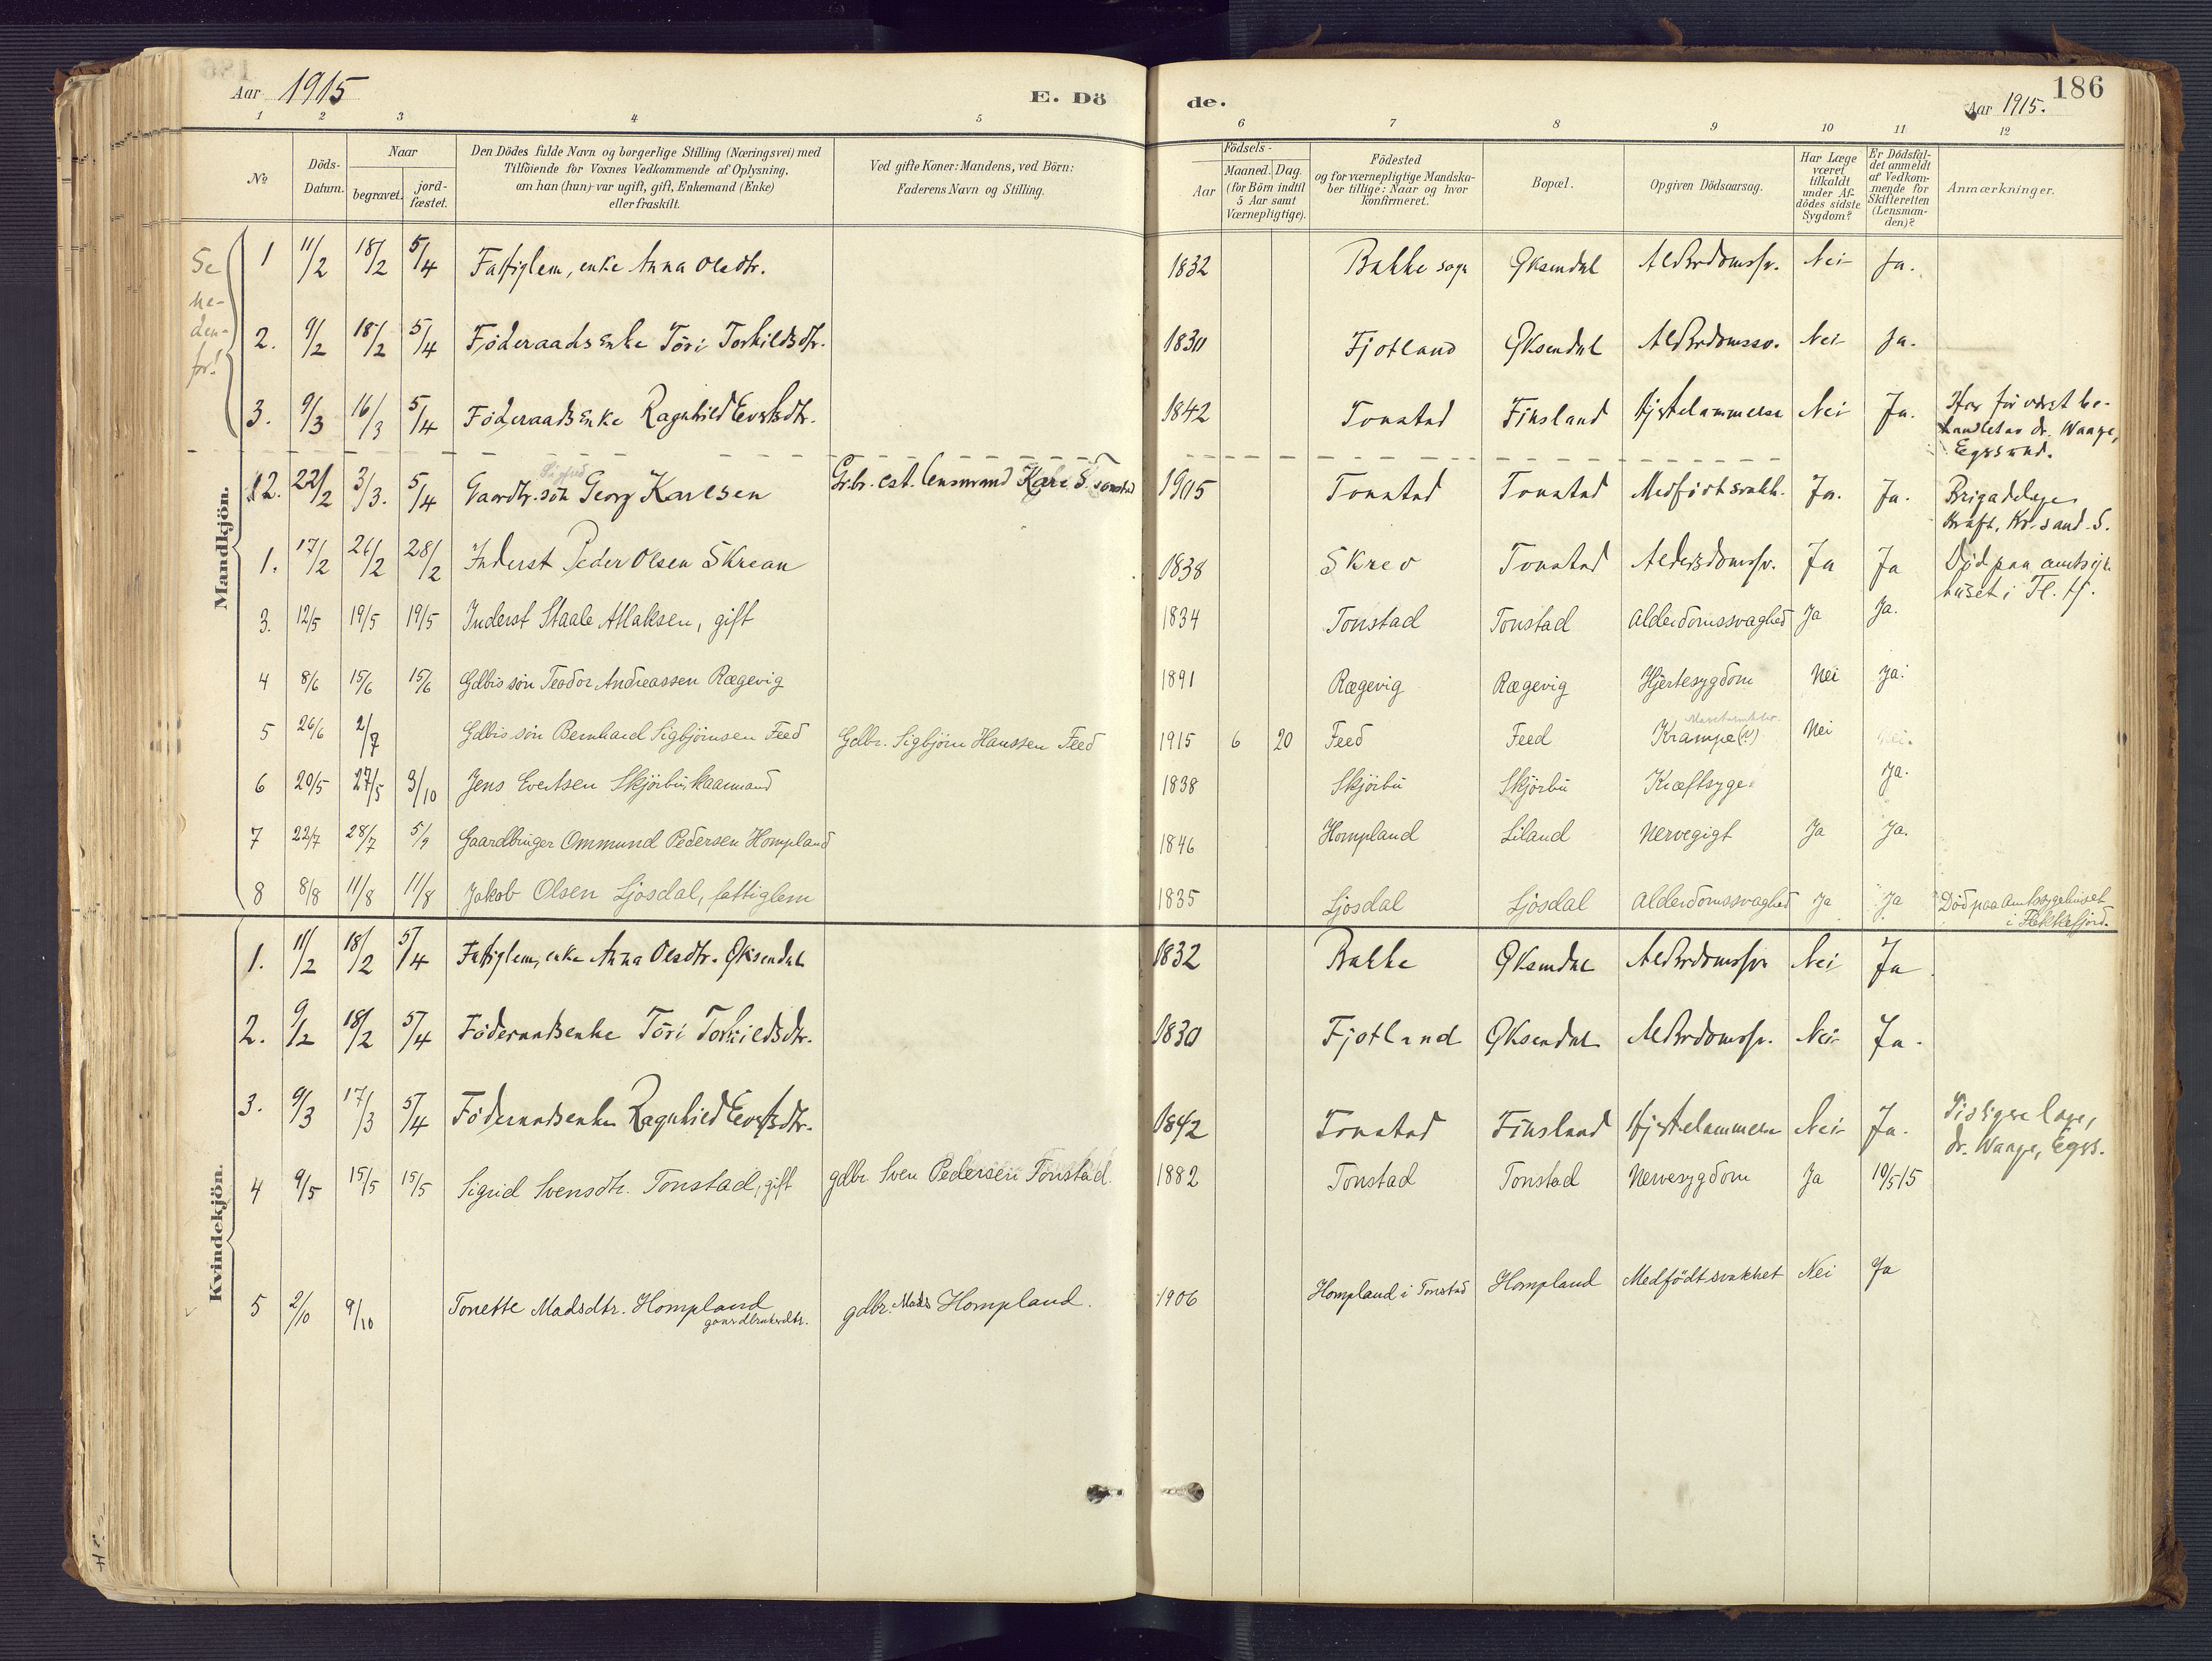 Aar 1915
E. Dö
de.
Aar 1915.
186
1 2 3 4 5 6 7 8 9 10 11 12
№
Döds-
Datum.
Naar
begravet.
jord-
fæstet.
Den Dödes fulde Navn og borgerlige Stilling (Næringsvei) med
Tilföiende for Voxnes Vedkommende af Oplysning,
om han (hun) var ugift, gift, Enkemand (Enke)
eller fraskilt.
Ved gifte Koner: Mandens, ved Börn:
Faderens Navn og Stilling.
Födsels-
Aar
Maaned. Dag.
(for Börn indtil
5 Aar samt
Værnepligtige).
Födested
og for værnepligtige Mandska-
ber tillige: Naar og hvor
konfirmeret.
Bopæl.
Opgiven Dödsaarsag.
Har Læge
været
tilkaldt
under Af-
dödes sidste
Sygdom?
Er Dödsfal-
det anmeldt
af Vedkom-
mende for
Skifteretten
(Lensman-
den)?
Anmærkninger.
Se
ne-
den-
for!
Mandkjön.
1 11/2 18/2 5/4 Fattiglem, enke Anna Olsdtr. 1832 Bakke sogn Øksendal Alderdomssv. Nei Ja.
2. 9/2 18/2 5/4 Föderaadsenke Töri Torkildsdtr. 1830 Fjotland Øksendal Alderdomssv. Nei Ja.
3. 9/3 16/3 5/4 Föderaadsenke Ragnhild Evertsdtr. 1842 Tonstad Finsland Hjertelammelse Nei Ja. Har för været be-
handlet av dr. Waage,
Egersund.
2. 22/2 3/3. 5/4 Gaardbr. sön Georg Karlsen Gr.br. cst. lensmand Karl S. Tonstad 1905 Tonstad Tonstad Medfödt svakh. Ja. Ja. Brigadelæge
Kraft, Kr.sand S.
1. 17/2 26/2 28/2 Inderst Peder Olsen Skrean 1838 Skreo Tonstad Aldersdomssv. Ja Ja Död paa amtssyke-
huset i Fl. fj.
3. 12/5 19/5 19/5 Inderst Staale Atlaksen, gift 1834 Tonstad Tonstad Alderdomssvaghed Ja Ja.
4 8/6 15/6 15/6 Gdbrs sön Teodor Andreassen Rægevig 1891 Rægevig Rægevig Hjertesygdom Nei Ja.
5 26/6 2/7 Gdbrs sön Bernhard Sigbjörnsen Feed Gdbr. Sigbjörn Hanssen Feed 1915 6 20 Feed Feed Krampe(?) Nei Nei.
6 20/5 27/5 3/10 Jens Evertsen Skjörbu, kaarmand 1838 Skjörbu Skjörbu Kræftsyge. Ja.
7 22/7 28/7 5/9 Gaardbruger Ommund Pedersen Hompland 1846 Hompland Liland Nervegigt Ja Ja.
8 8/8 11/8 11/8 Jakob Olsen Ljosdal, fattiglem 1835 Ljosdal Ljosdal Alderdomssvaghed Ja Ja Död paa Amtssygehuset
i Flekkefjord.
Kvindekjön.
1. 11/2 18/2 5/4 Fattiglem, enke Anna Olsdtr. Øksendal 1832 Bakke Øksendal Alderdomssv Nei Ja
2. 9/2 18/2 5/4 Föderaadsenke Töri Torkildsdtr. 1830 Fjotland Øksendal Alderdomssv. Nei Ja.
3. 9/3 17/3 5/4 Föderaadsenke Ragnhild Evertsdtr. 1842 Tonstad Finsland Hjertelammelse Nei Ja. Tidligere læge,
dr. Waage, Egers.
4 9/5 15/5 15/5 Sigrid Svensdtr. Tonstad, gift gdbr. Sven Pedersen Tonstad. 1882 Tonstad Tonstad Nervesygdom Ja 10/5-15
5 2/10 9/10 Tonette Madsdtr. Hompland gdbr. Mads Hompland. 1906 Hompland i Tonstad Hompland Medfödt svakhet Nei Ja
gaardbrukerdtr.